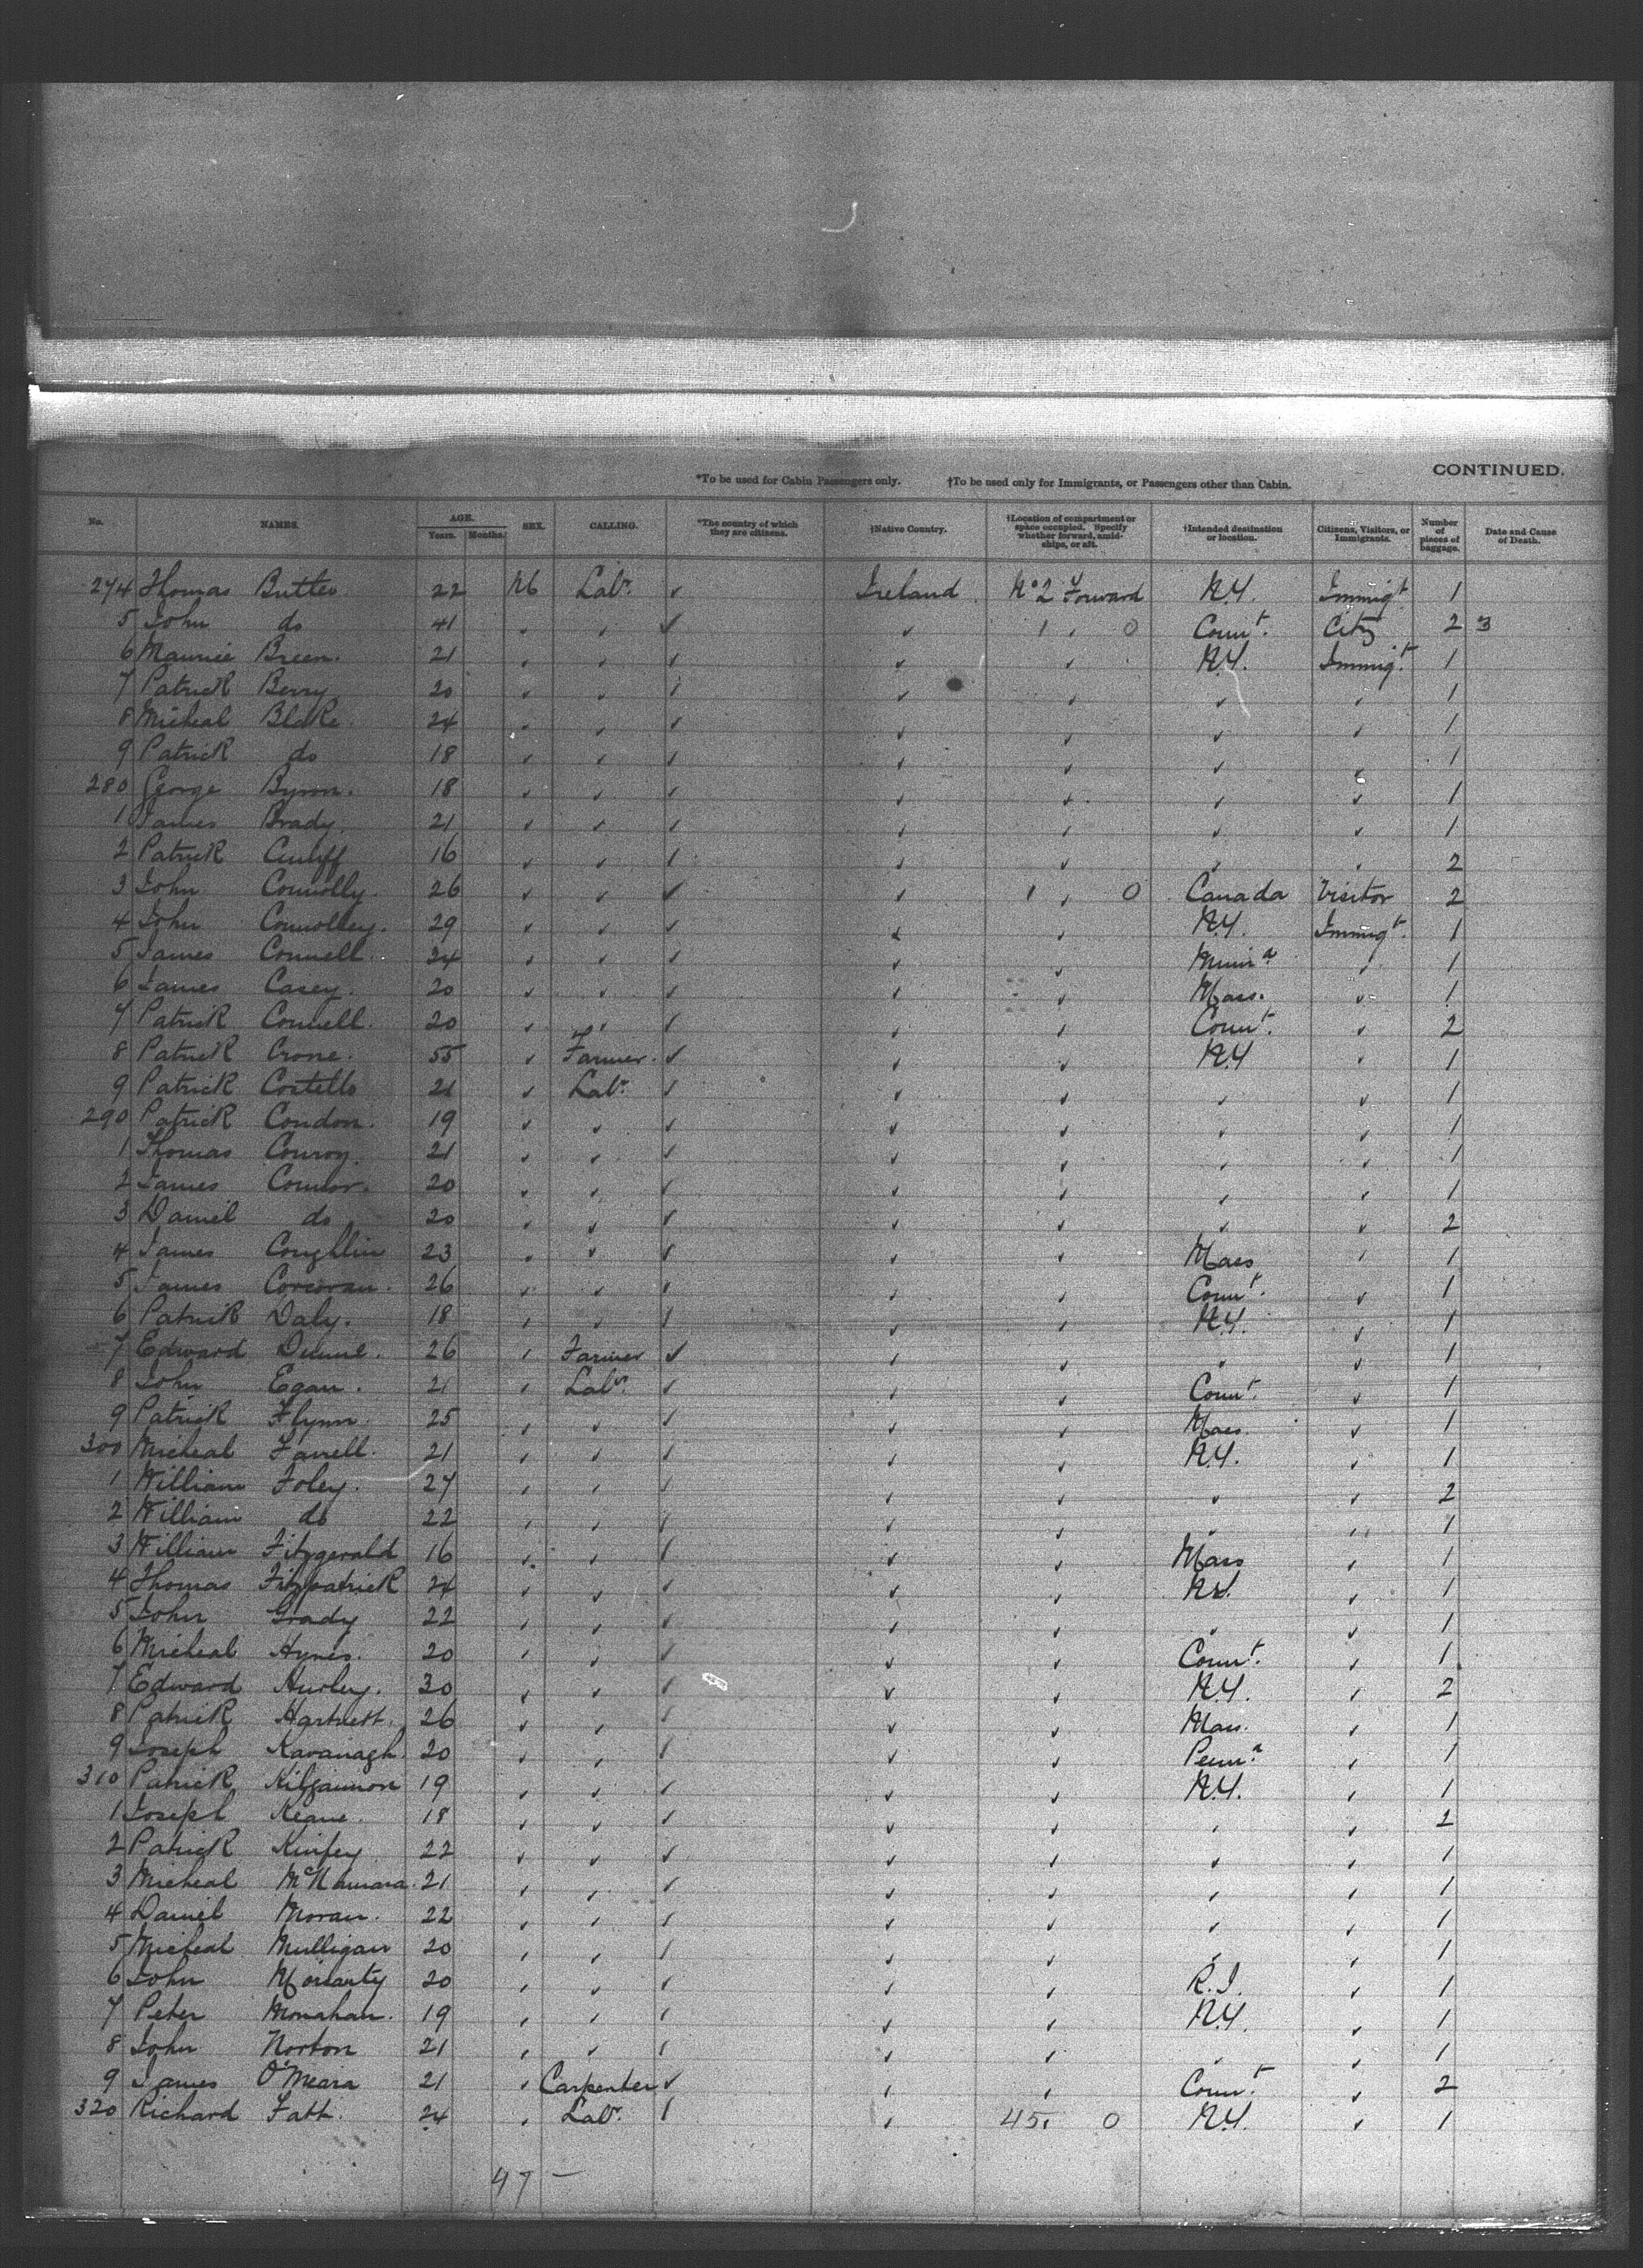 CONTINUED.
*To be used for Cabin Passengers only. †To be used only for Immigrants, or Passengers other than Cabin.
No. NAMES. AGE. Years. Months. SEX. CALLING. *The country of which they are citizens. †Native Country. †Location of compartment or space occupied. Specify whether forward, amidships, or aft. †Intended destination or location. Citizens, Visitors, or Immigrants. Number of pieces of baggage. Date and Cause of Death.
274 Thomas Butler 22 M Labr. ✓ Ireland No 2 Forward N.Y. Immigt. 1
5 John do 41 1 0 Connt. City 2 3
6 Maurice Breen. 21 N.Y. Immigt. 1
7 Patrick Berry 20 1
8 Micheal Blake. 24 1
9 Patrick do 18 1
280 George Byron. 18 1
1 James Brady. 21 1
2 Patrick Cunliff 16 2
3 John Connolly. 26 1 0 Canada Visitor 2
4 John Connolley. 29 N.Y. Immigt. 1
5 James Connell. 24 Minna 1
6 James Casey. 20 Mass. 1
7 Patrick Connell. 20 Connt. 2
8 Patrick Crone. 55 Farmer. N.Y 1
9 Patrick Costello 21 Labr. 1
290 Patrick Condon. 19 1
1 Thomas Conroy. 21 1
2 James Connor. 20 1
3 Daniel do 20 2
4 James Coughlin 23 Mass 1
5 James Corcoran. 26 Connt. 1
6 Patrick Daly. 18 N.Y. 1
7 Edward Dunne. 26 Farmer 1
8 John Egan. 21 Labr. Connt. 1
9 Patrick Flynn. 25 Mass. 1
300 Micheal Farrell. 21 N.Y. 1
1 William Foley. 27 2
2 William do 22 1
3 William Fitzgerald 16 Mass 1
4 Thomas Fitzpatrick 24 1
5 John Grady 22 1
6 Micheal Hynes. 20 Connt. 1
7 Edward Hurley. 30 N.Y. 2
8 Patrick Hartnett. 26 Mass. 1
9 Joseph Kavanagh. 20 Penna. 1
310 Patrick Kilgannon 19 N.Y. 1
1 Joseph Keane. 18 2
2 Patrick 22 1
3 Micheal McNamara. 21 1
4 Daniel Moran. 22 1
5 Micheal Mulligan 20 1
6 John Moriarty 20 R.I. 1
7 Peter Monahan. 19 N.Y. 1
8 John Norton 21 1
9 James O'Meara 21 Carpenter Connt. 2
320 Richard Fatt. 24 Labr. 45 0 N.Y. 1
47 –